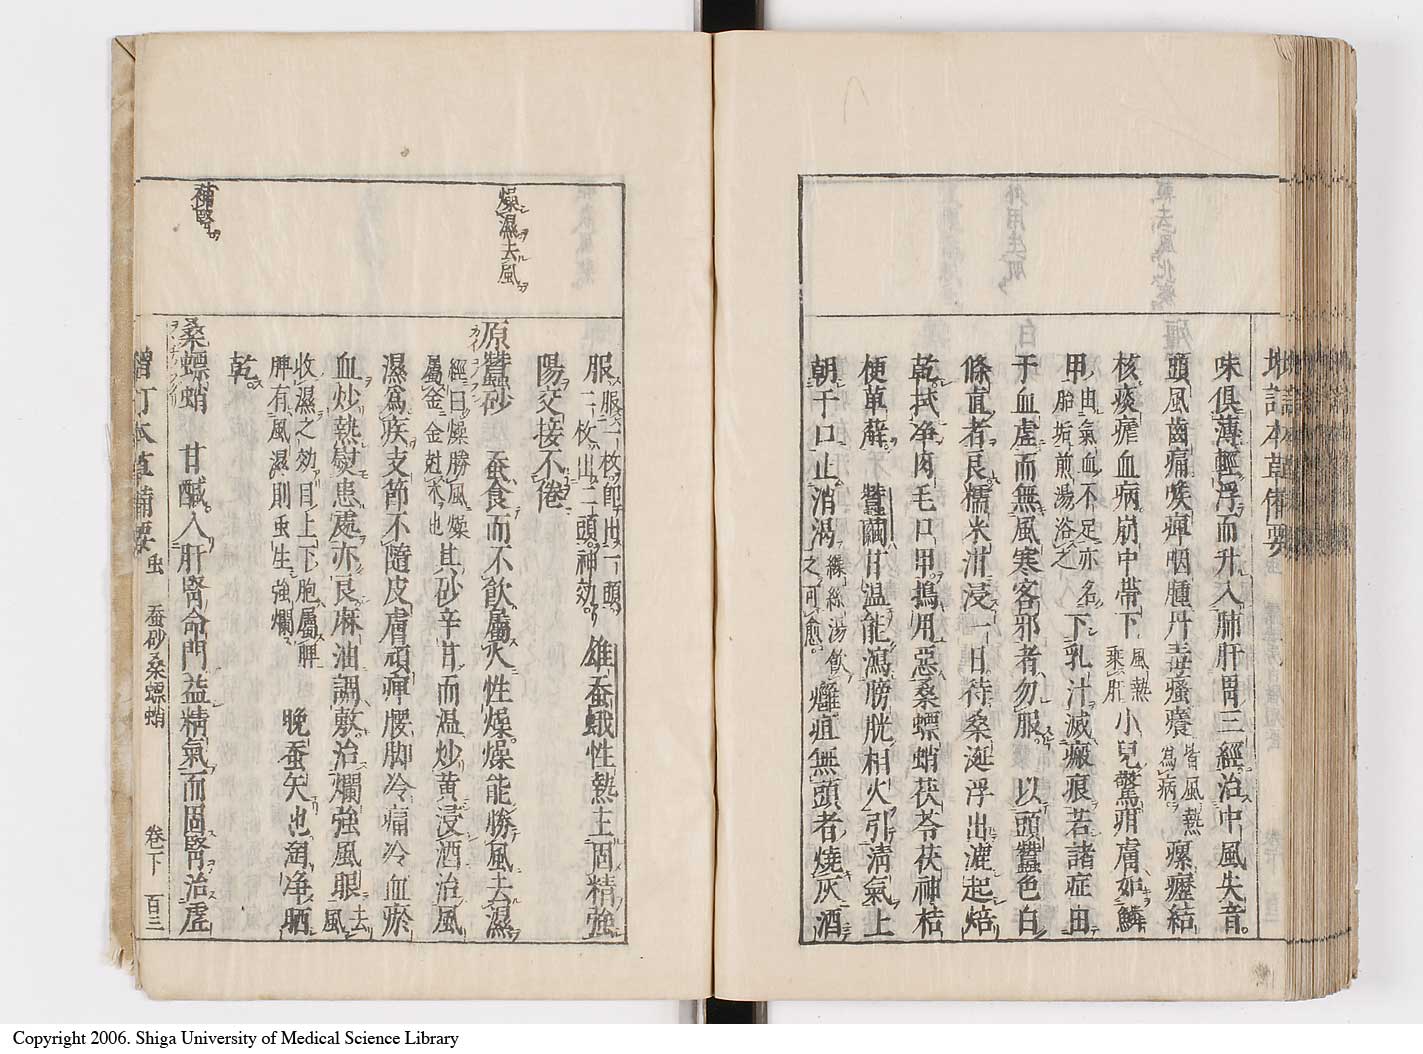 味俱薄輕浮而升入肺肝胃三經治中風失音
頭風齒痛喉痺咽腫丹毒瘙癢皆風熱為病瘰癧結
核痰瘧血病崩中帶下風熱乘肝小兒驚疳膚如鱗
甲由氣血不足亦名胎垢煎湯浴之下乳汁滅瘢痕若諸症由
于血虛而無風寒客邪者勿服以頭蠶色白
條直者良糯米泔浸一日待桑涎浮出漉起焙
乾拭净肉毛口甲搗用惡桑螵蛸茯苓茯神桔
梗萆薢蠶繭甘温能瀉膀胱相火引清氣上
朝于口止消渴繰絲湯飲之可愈癰疽無頭者燒灰酒
服服一枚即出一頭二枚出二頭神効雄蚕蛾性熱主固精強
陽交接不倦
燥濕去風
原蠶砂蚕食而不飲屬火性燥燥能勝風去濕
經曰燥勝風燥屬金金尅木也其砂辛甘而温炒黄浸酒治風
濕爲疾支節不隨皮膚頑痺腰脚冷痛冷血瘀
血炒熱熨患處亦良麻油調敷治爛弦風眼去風
收濕之効目上下胞屬脾脾有風濕則虫生弦爛晚蚕矢也淘净晒
乾
補腎
桑螵蛸甘鹹入肝腎命門益精氣而固腎治虛
增訂本草備要 虫 蚕砂桑螵蛸 卷下 百三
Copyright 2006. Shiga University of Medical Science Library